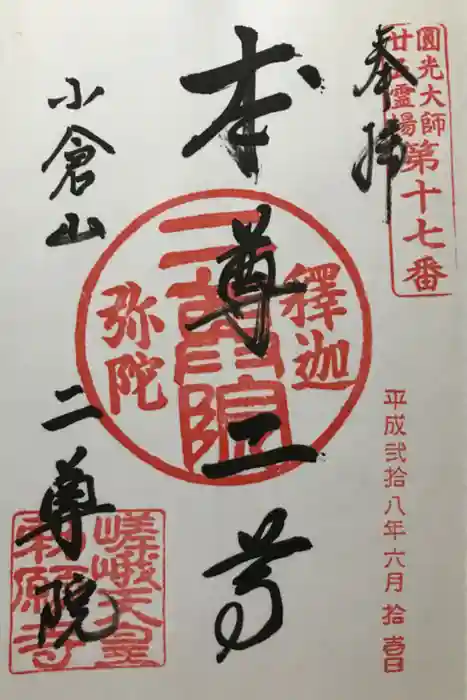 圓光大師
廿五霊場
第十七番
奉拝
平成弐拾八年六月拾壱日
本尊二尊
釋迦
二尊院
弥陀
小倉山
二尊院
嵯峨天皇
勅願寺